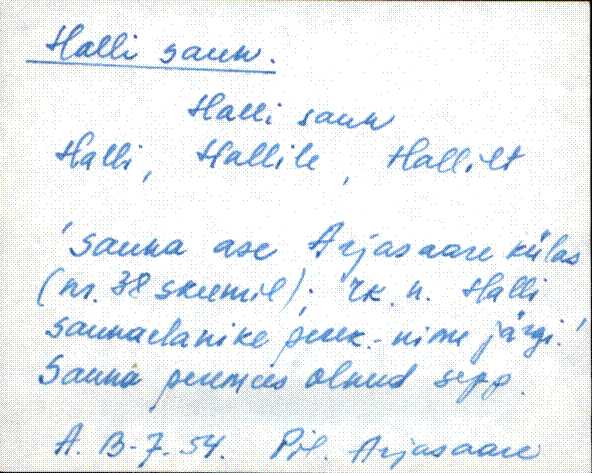 Halli saun.
Halli saun
Halli, Hallile, Hallilt
'Sauna ase Arjasaare külas
(nr. 38 skeemil); rk. n. Halli
saunaelanike perek.-nime järgi.'
Sauna peremees olnud sepp.
A. B-7-54. Pjl. Arjasaare